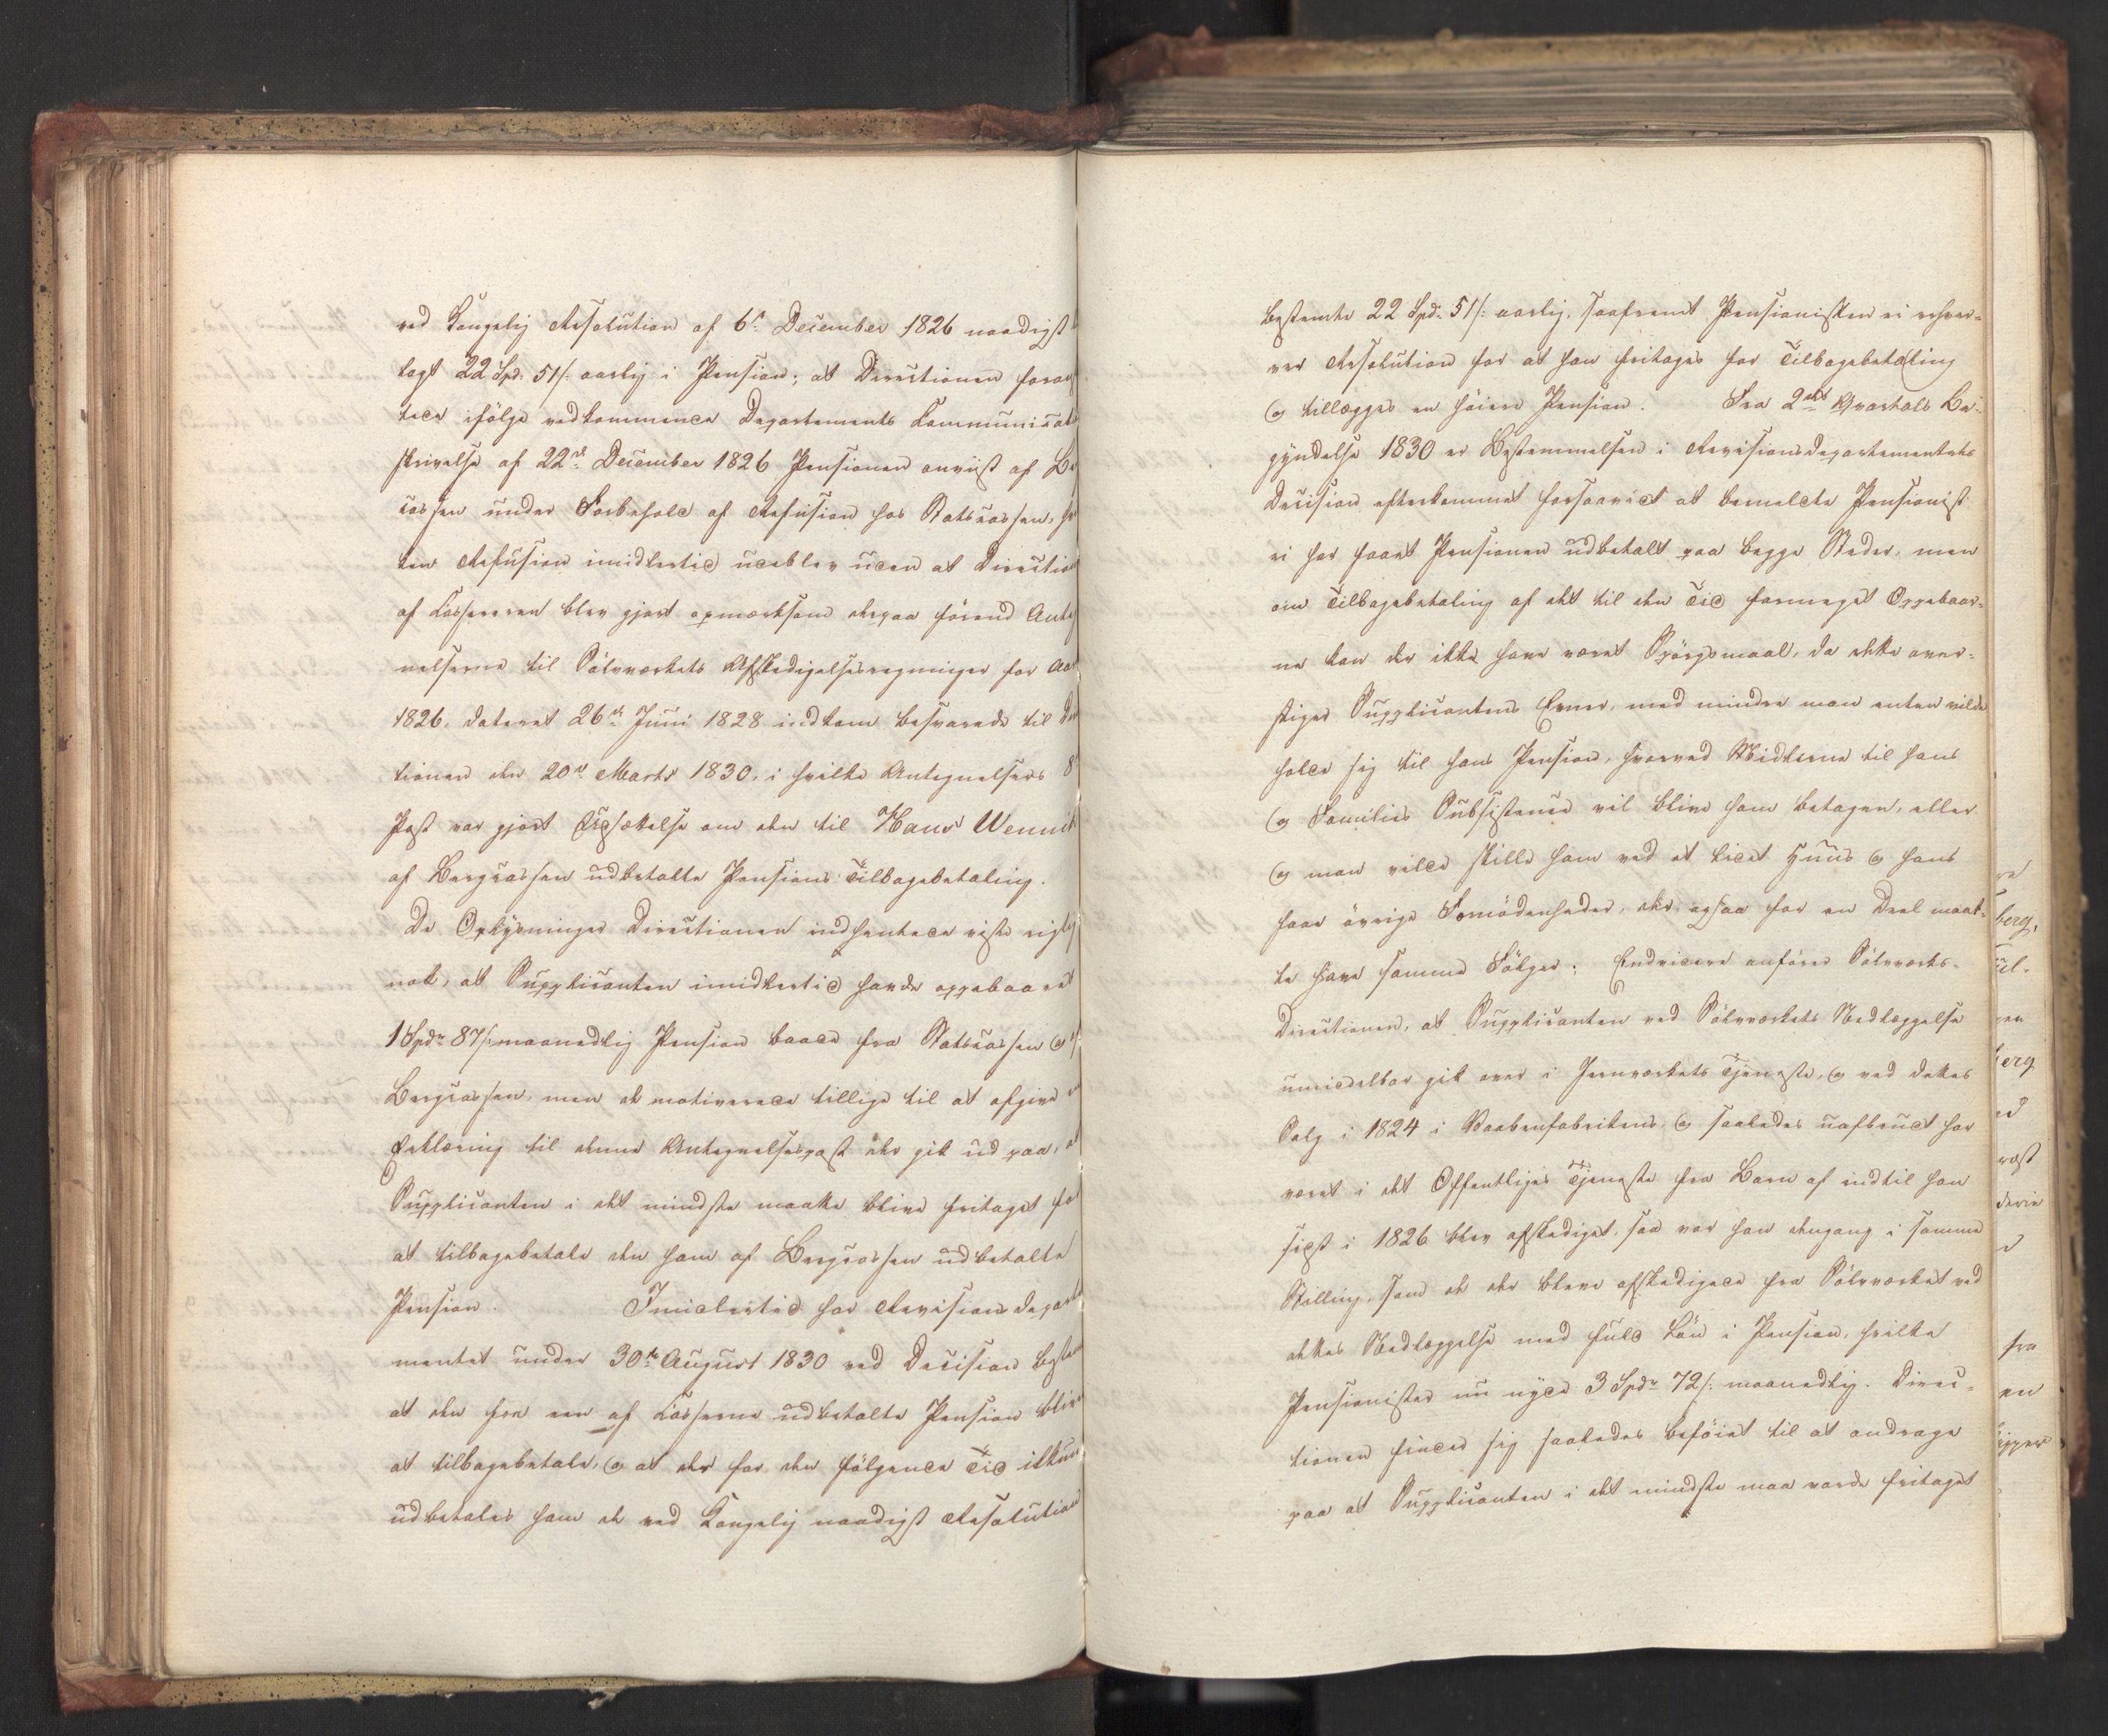 ved Kongelig Resolution af 6te December 1826 naadigst
lagt 22 Spd. 51 s. aarlig i Pension; at Directionen foran
tede ifölge vedkommende Departements Communicat
skrivelse af 22de December 1826 Pensionen anviist af Be
cassen under Forbehold af Refusion hos Statscassen, hv
ken Refusion imidlertid udeblev uden at Direction
af Kassereren blev gjort opmærksom derpaa förend Anteg
nelserne til Sölvværkets Afskedigelsesregninger for Aar
1826, dateret 26de Juni 1828 indkom besvarede til Dir
tionen den 20de Marts 1830, i hvilke Antegnelsers 8
Post var gjort Udsættelse om den til Hans Wennit
af Bergcassen udbetalte Pensions Tilbagebetaling.
De Oplysninger Directionen indhentede viste rigtig
nok, at Supplicanten imidlertid havde oppebaaret
1 Spdr 87 s. maanedlig Pension baade fra Statscassen og
Bergcassen, men de motiverede tillige til at afgive en
Erklæring til denne Antegnelsespost der gik ud paa, at
Supplicanten i det mindste maatte blive fritaget for
at tilbagebetale den ham af Bergcassen udbetalte
Pension. Imidlertid har Revisions departe
mentet under 30te August 1830 ved Decision bestem
at den fra een af Kasserne udbetalte Pension bliver
at tilbagebetale, og at der for den fölgende Tid ikkun
udbetales ham de ved Kongelig naadigst Resolution
bestemte 22 Spd. 51 s. aarlig, saafremt Pensionisten ei erhver-
ver Resolution for at han fritages for Tilbagebetaling
og tillægges en höiere Pension. Fra 2det Qvartals Be-
gyndelse 1830 er Bestemmelsen i Revisionsdepartementets
Decision efterkommet forsaavidt at bemeldte Pensionist
ei har faaet Pensionen udbetalt paa begge Steder, men
om Tilbagebetaling af det til den Tid formeget Oppebaar-
ne kan der ikke have været Spörgsmaal, da dette over-
stiger Supplicantens Evner, med mindre man enten vilde
holde sig til hans Pension, hvorved Midlerne til hans
og Families Subsistence vil blive ham betagen, eller
og man vilde skille ham ved et lidet Huus og hans
faae övrige Fornödenheder, der ogsaa for en Deel maat-
te have samme Fölger. Endvidere anförer Sölvværks-
Directionen, at Supplicanten ved Sölvværkets Nedlæggelse
umiddelbar gik over i Jernværkets Tjeneste, og ved dettes
Salg i 1824 i Vaabenfabrikens, og saaledes uafbrudt har
været i det Offentliges Tjeneste fra Barn af indtil han
sidst i 1826 blev afskediget, saa var han dengang i samme
Stilling, som de der bleve afskedigede fra Sölvværket ved
dettes Nedlæggelse med fuld Lön i Pension, hvilke
Pensionister nu nyde 3 Spdr 72 s. maanedlig. Direc-
tionen finder sig saaledes beföiet til at andrage
paa at Supplicanten i det mindste maa vorde fritaget